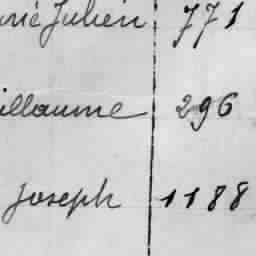 Julien 771
illaume 296
Joseph 1188